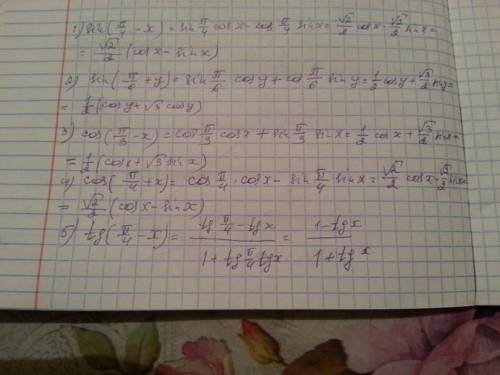 1) sin(π/4 - x) = sin π/4 cos x - cos π/4 sin x = √2/2 cos x - √2/2 sin x =
= √2/2 (cos x - sin x)
2) sin(π/6 + y) = sin π/6 cos y + cos π/6 sin y = 1/2 cos y + √3/2 sin y =
= 1/2 (cos y + √3 cos y)
3) cos(π/3 - x) = cos π/3 cos x + sin π/3 sin x = 1/2 cos x + √3/2 sin x =
= 1/2 (cos x + √3 sin x)
4) cos(π/4 + x) = cos π/4 · cos x - sin π/4 · sin x = √2/2 cos x - √2/2 sin x =
= √2/2 (cos x - sin x)
5) tg(π/4 - x) = (tg π/4 - tg x)/(1 + tg π/4 tg x) = (1 - tg x)/(1 + tg x)